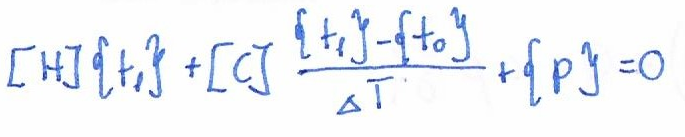 [H]{t₁} + [C] {t₁}-{t₀} / ΔT + {p} = 0